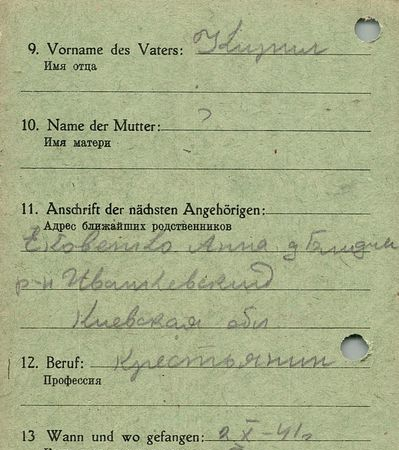 9. Vorname des Vaters: Кирил
Имя отца
10. Name der Mutter: ?
Имя матери
11. Anschrift der nächsten Angehörigen:
Адрес ближайших родственников
Анна д
р-н Иванкевский
Киевская обл
12. Beruf: Крестьянин
Профессия
13 Wann und wo gefangen: 2 X-41г